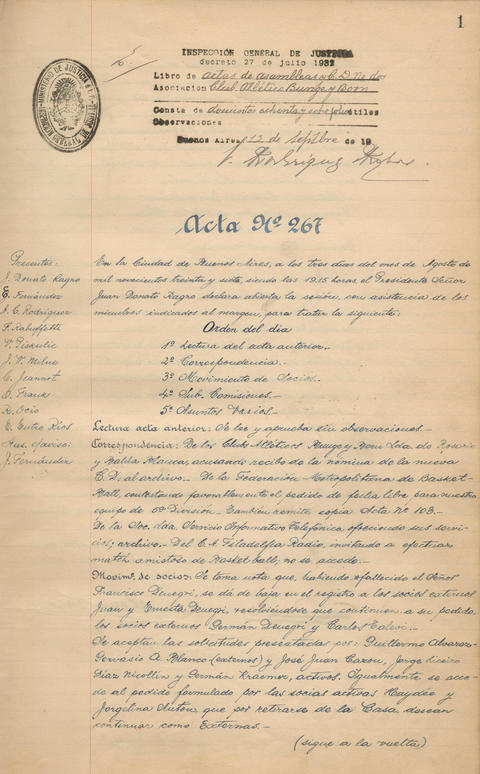 1
INSPECCIÓN GENERAL DE JUSTICIA
decreto 27 de julio 1932
Libro de actas de asambleas y C. D. No dos
Asociacion Club Atlético Bunge y Born
Consta de doscientos ochenta y útiles
Observaciones
Buenos Aires 12 de Septbre de 19
MINISTERIO DE JUSTICIA
Acta Nº 267
Presentes:
J. Donato Ragro
E. Fernández
A. C. Rodríguez
F. Rabuffetti
V. Peskulic
J. V. Milne
C. Jeannot
D. Frank
R. Ocio
E. Entre Ríos
Aus. c/aviso:
J. Fernández
En la Ciudad de Buenos Aires, a los tres días del mes de Agosto de
mil novecientos treinta y siete, siendo las 19.15 horas el Presidente Señor
Juan Donato Ragro declara abierta la sesión, con asistencia de los
miembros indicados al margen, para tratar la siguiente:
Orden del día
1º Lectura del acta anterior.
2º Correspondencia.
3º Movimiento de Socios.
4º Sub. Comisiones.
5º Asuntos Varios.
Lectura acta anterior: Se lee y aprueba sin observaciones.
Correspondencia: De los Clubs Atléticos Bunge y Born Ltda. de Rosario
y Bahía Blanca, acusando recibo de la nomina de la nueva
C. D; al archivo. - De la Federación Metropolitana de Basket-
Ball, contestando favorablemente el pedido de fecha libre para nuestro
equipo de División. - También remite copia Acta Nº 103.
De la Soc. Ltda Servicio Informativo Telefónico ofreciendo sus servi-
cios; archivo. - Del C. A. Filadelfia Radio, invitando a efectuar
match amistoso de Basket Ball; no se accede.
Movim. de socios: Se toma nota que, habiendo fallecido el Señor
Francisco Denegri, se dá de baja en el registro a los socios externos
Juan y Ernesta Denegri, resolviéndose que continuen, a su pedido,
los socios externos Germán Denegri y Carlos Calevi.
Se aceptan las solicitudes presentadas por: Guillermo Alvarez,
Gervasio A. Blanco (externos) y José Juan Carou, Jorge
Díaz Nicollin y Germán Kraemer, activos. Igualmente se acce-
de al pedido formulado por las socias activas Haydée y
Jorgelina que por retirarse de la Casa desean
continuar como Externas. -
(sigue a la vuelta)